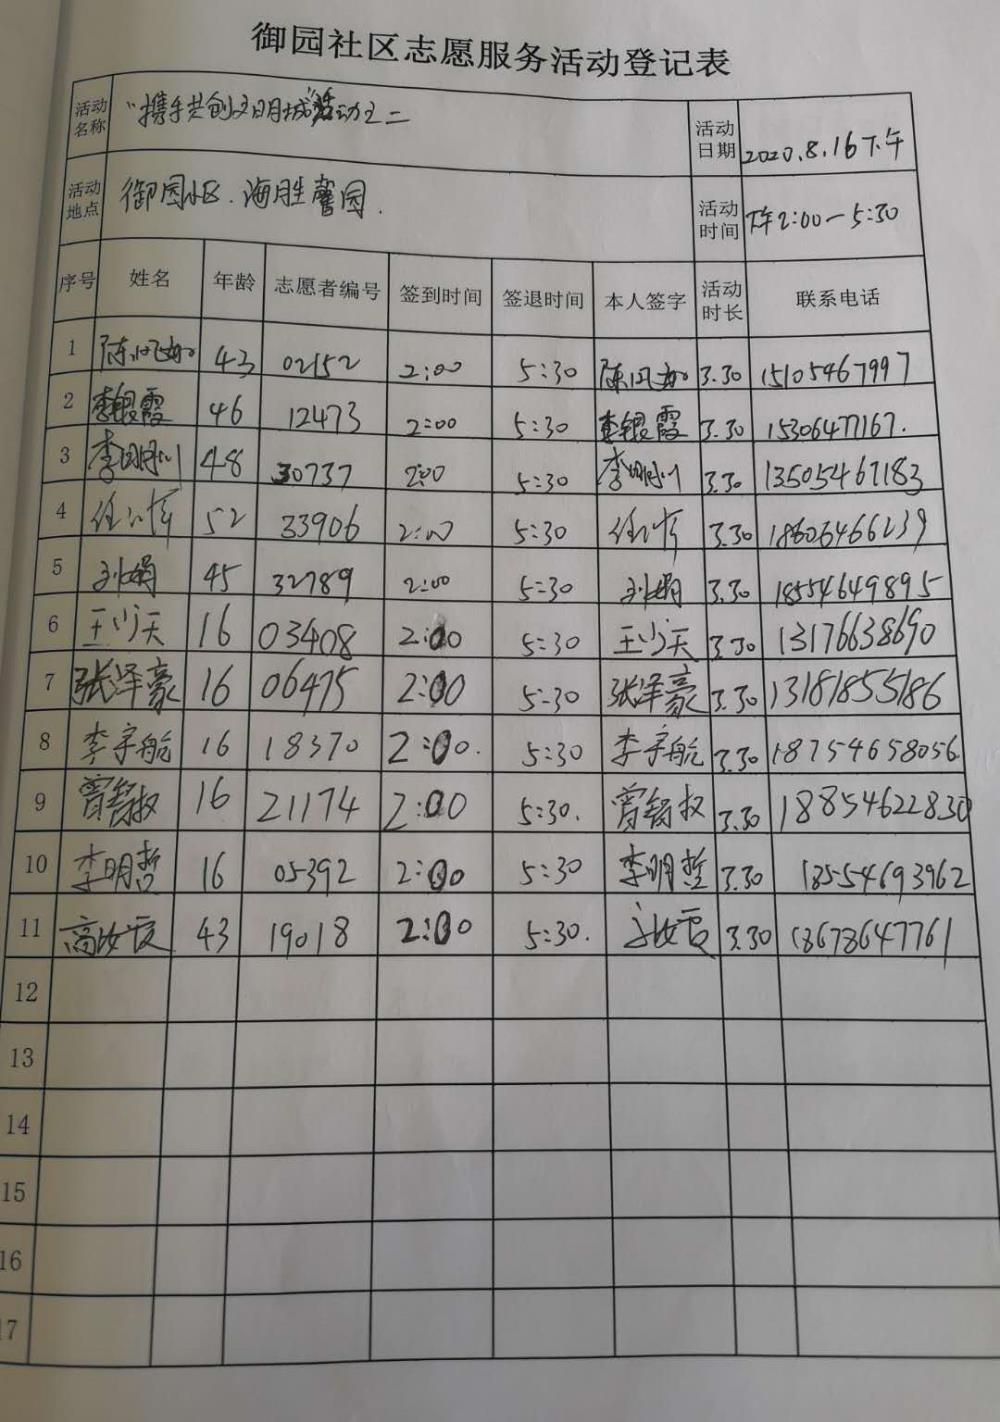 御园社区志愿服务活动登记表
活动名称 "携手共创文明城"活动之二 活动日期 2020.8.16下午
活动地点 御园小区.海胜馨园. 活动时间 下午2:00-5:30
序号 姓名 年龄 志愿者编号 签到时间 签退时间 本人签字 活动时长 联系电话
1 陈风如 43 02152 2:00 5:30 陈风如 3.30 15105467997
2 李银霞 46 12473 2:00 5:30 李银霞 3.30 15306477167.
3 李明 48 30737 2:00 5:30 李明 3.30 13505467183
4 任 52 33906 2:00 5:30 任 3.30 18606466239
5 刘娟 45 32789 2:00 5:30 刘娟 3.30 18554649895
6 王少天 16 03408 2:00 5:30 王少天 3.30 13176638690
7 张泽豪 16 06475 2:00 5:30 张泽豪 3.30 13181855186
8 李宇航 16 18370 2:00. 5:30 李宇航 3.30 18754658056
9 16 21174 2:00 5:30. 3.30 18854622830
10 李明哲 16 05392 2:00 5:30 李明哲 3.30 18554693962
11 高 43 19018 2:00 5:30. 3.30 18678647761
12
13
14
15
16
17